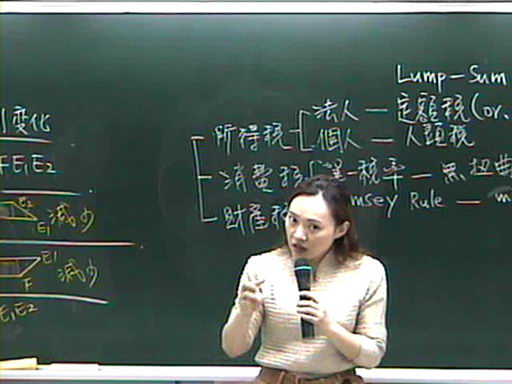 變化
FE₁E₂
E₂ 減少
E₁
E₁ 減少
F
E₁E₂
Lump-Sum
所得稅 法人 — 定額稅(or.
個人 — 人頭稅
消費稅 單一稅率 — 無扭曲
財產稅 msey Rule — m